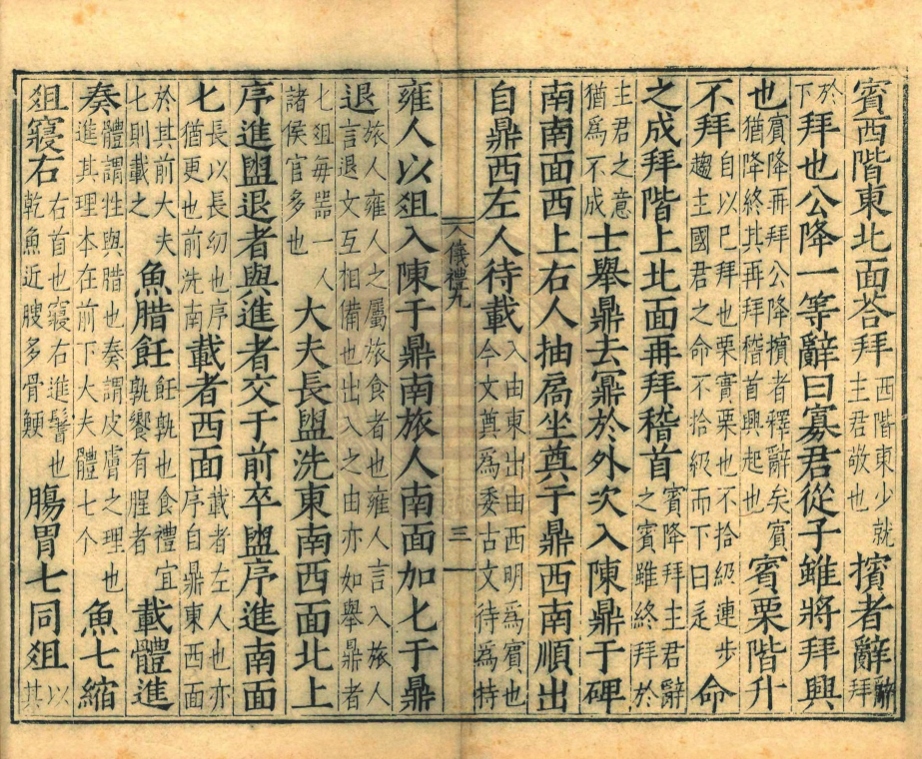 賓西階東北面荅拜西階東少就主君敬也擯者辭辭拜
於下拜也公降一等辭曰寡君從子雖將拜興
也賓降再拜公降擯者釋辭矣賓猶降終其再拜稽首興起也賓栗階升
不拜自以已拜也栗實栗也不拾級連步趨主國君之命不拾級而下曰辵命
之成拜階上北面再拜稽首賓降拜主君辭之賓雖終拜於
主君之意猶爲不成士舉鼎去鼏於外次入陳鼎于碑
南南面西上右人抽扃坐奠于鼎西南順出
自鼎西左人待載入由東出由西明爲賓也今文奠爲委古文待爲持
儀禮九
三
雍人以俎入陳于鼎南旅人南面加匕于鼎
退旅人雍人之屬旅食者也雍人言入旅人言退文互相備也出入之由亦如舉鼎者
匕俎每噐一人諸侯官多也大夫長盥洗東南西面北上
序進盥退者與進者交于前卒盥序進南面
匕長以長幼也序猶更也前洗南載者西面載者左人也亦序自鼎東西面
於其前大夫匕則載之魚腊飪飪孰也食禮宜孰饗有腥者載體進
奏體謂牲與腊也奏謂皮膚之理也進其理本在前下大夫體七个魚七縮
俎寢右右首也寢右進鬐也乾魚近腴多骨鯁腸胃七同俎以其